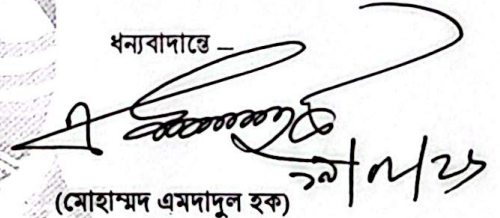 ধন্যবাদান্তে –
(মোহাম্মদ এমদাদুল হক)